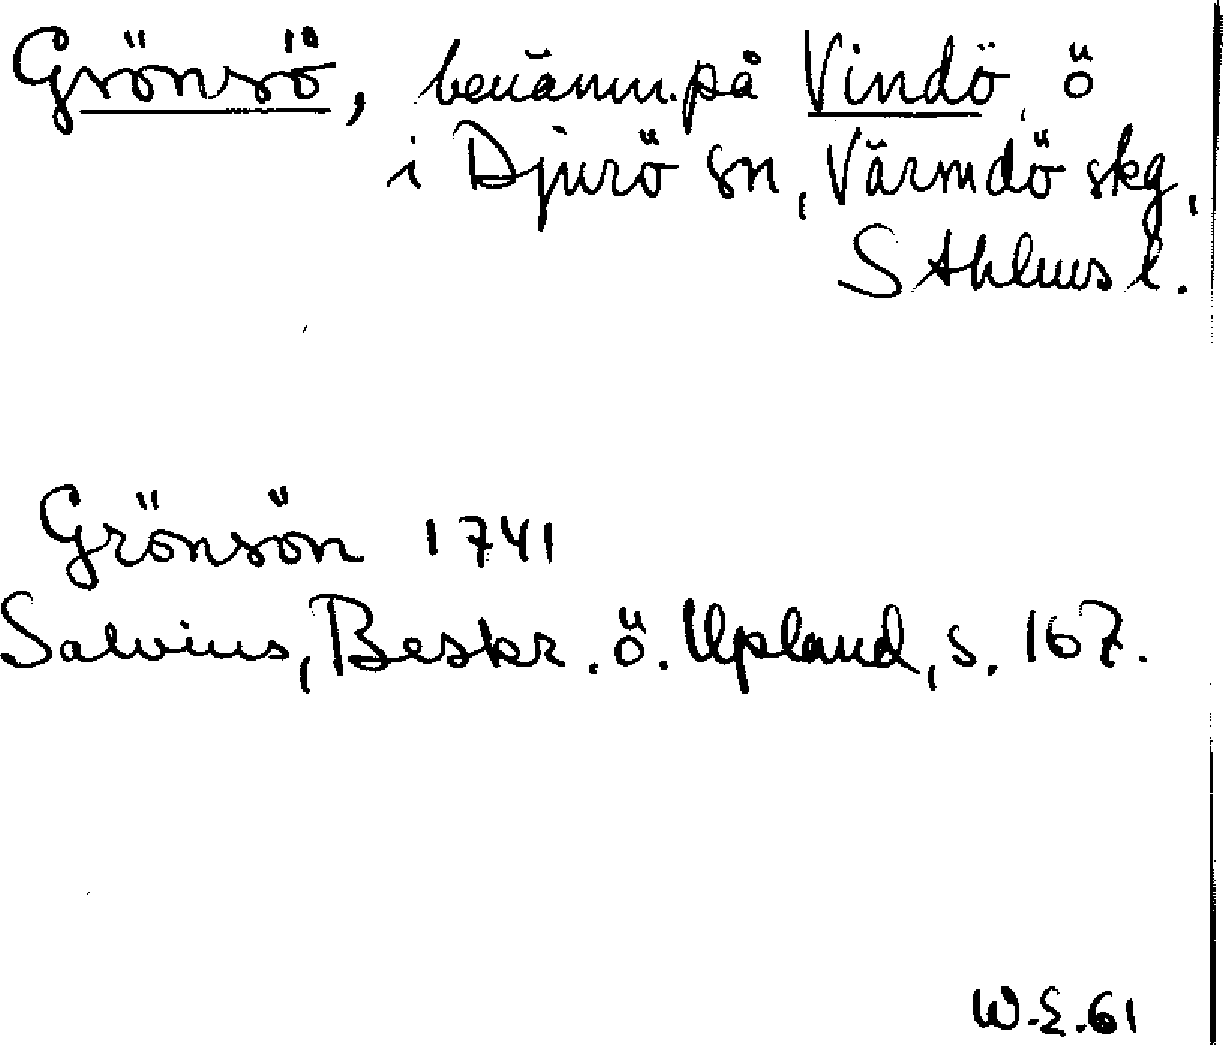 Grönsö, benämn. på Vindö, ö
i Djurö sn, Värmdö skg,
Sthlms l.
Grönsön 1741
Salvius, Beskr. ö. Upland, s. 167.
W.E.61